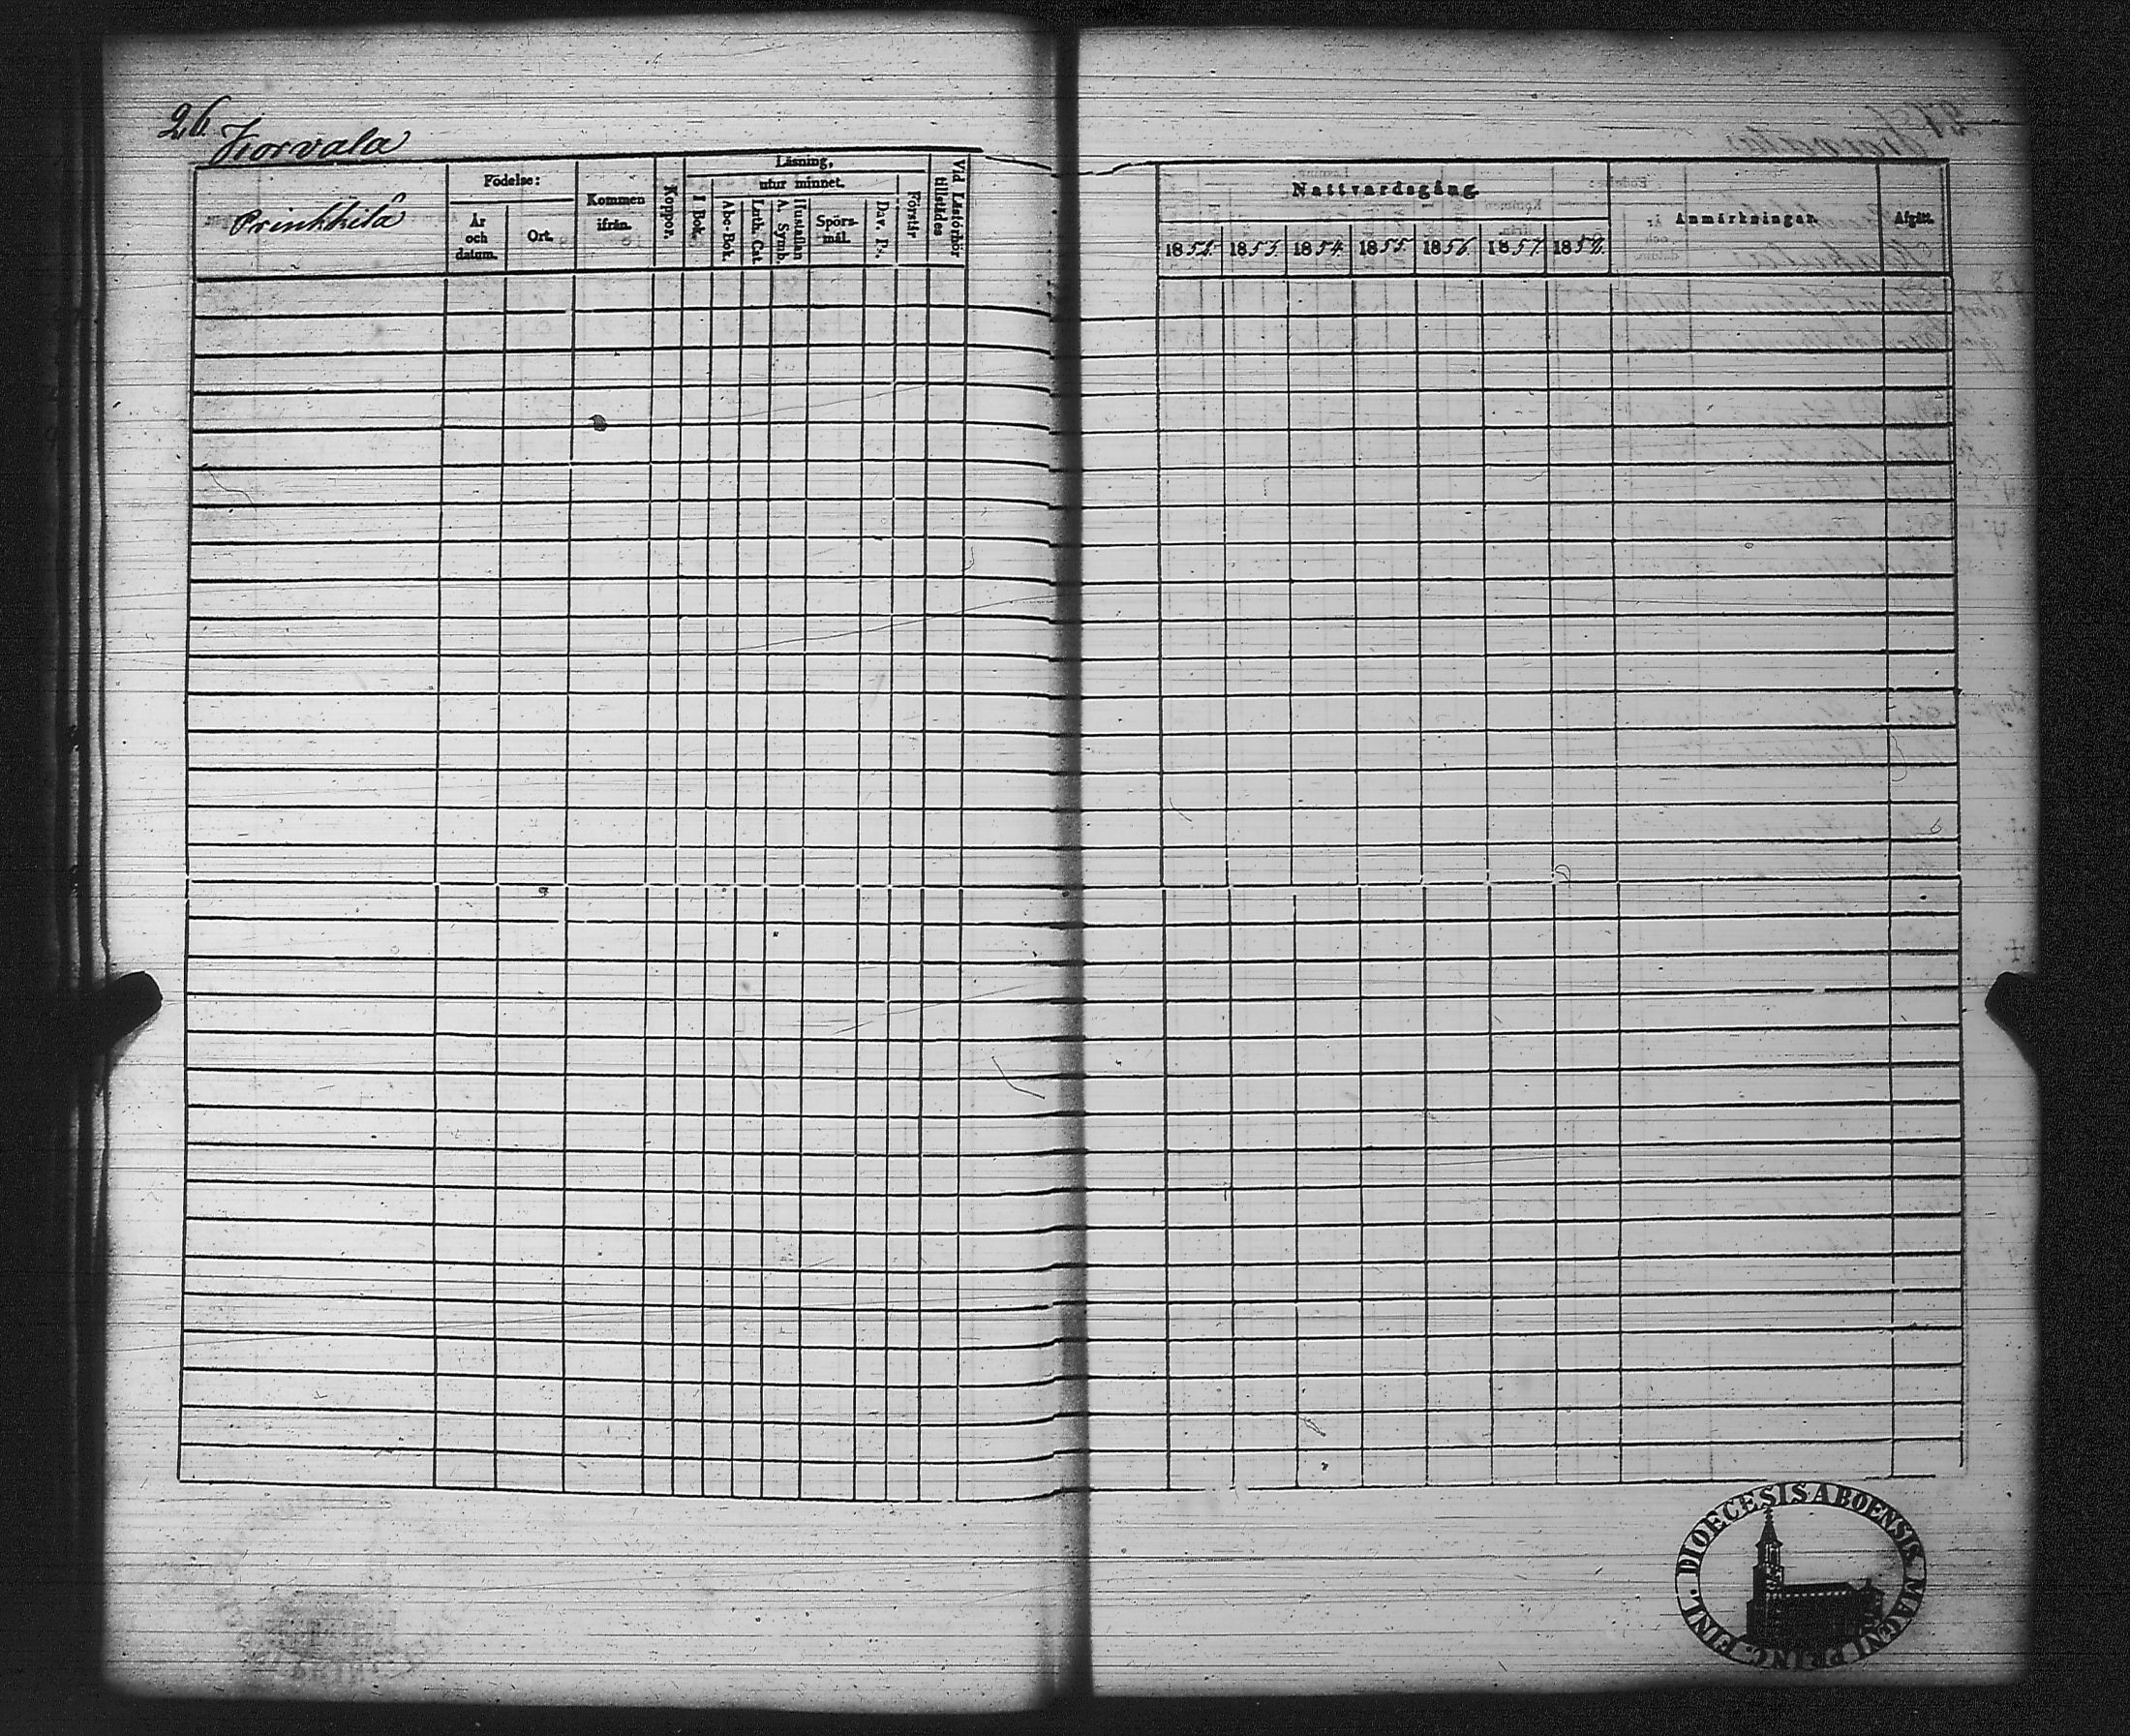 26.
Korvala
Prinkkilä
Födelse:
År
och
datum.
Ort.
Kommen
ifrån.
Koppor.
Läsning,
utur minnet.
I Bok.
Abc-Bok.
Luth. Cat.
Hustaflan
A. Symb.
Spörs-
mål.
Dav. Ps.
Förstår
Vid Läsförhör
tillstädes
Nattvardsgång.
1852.
1853.
1854.
1855.
1856.
1857.
1858.
Anmärkningar.
Afgått.
DIOECESIS ABOENSIS MAGNI PRINC. FINL.